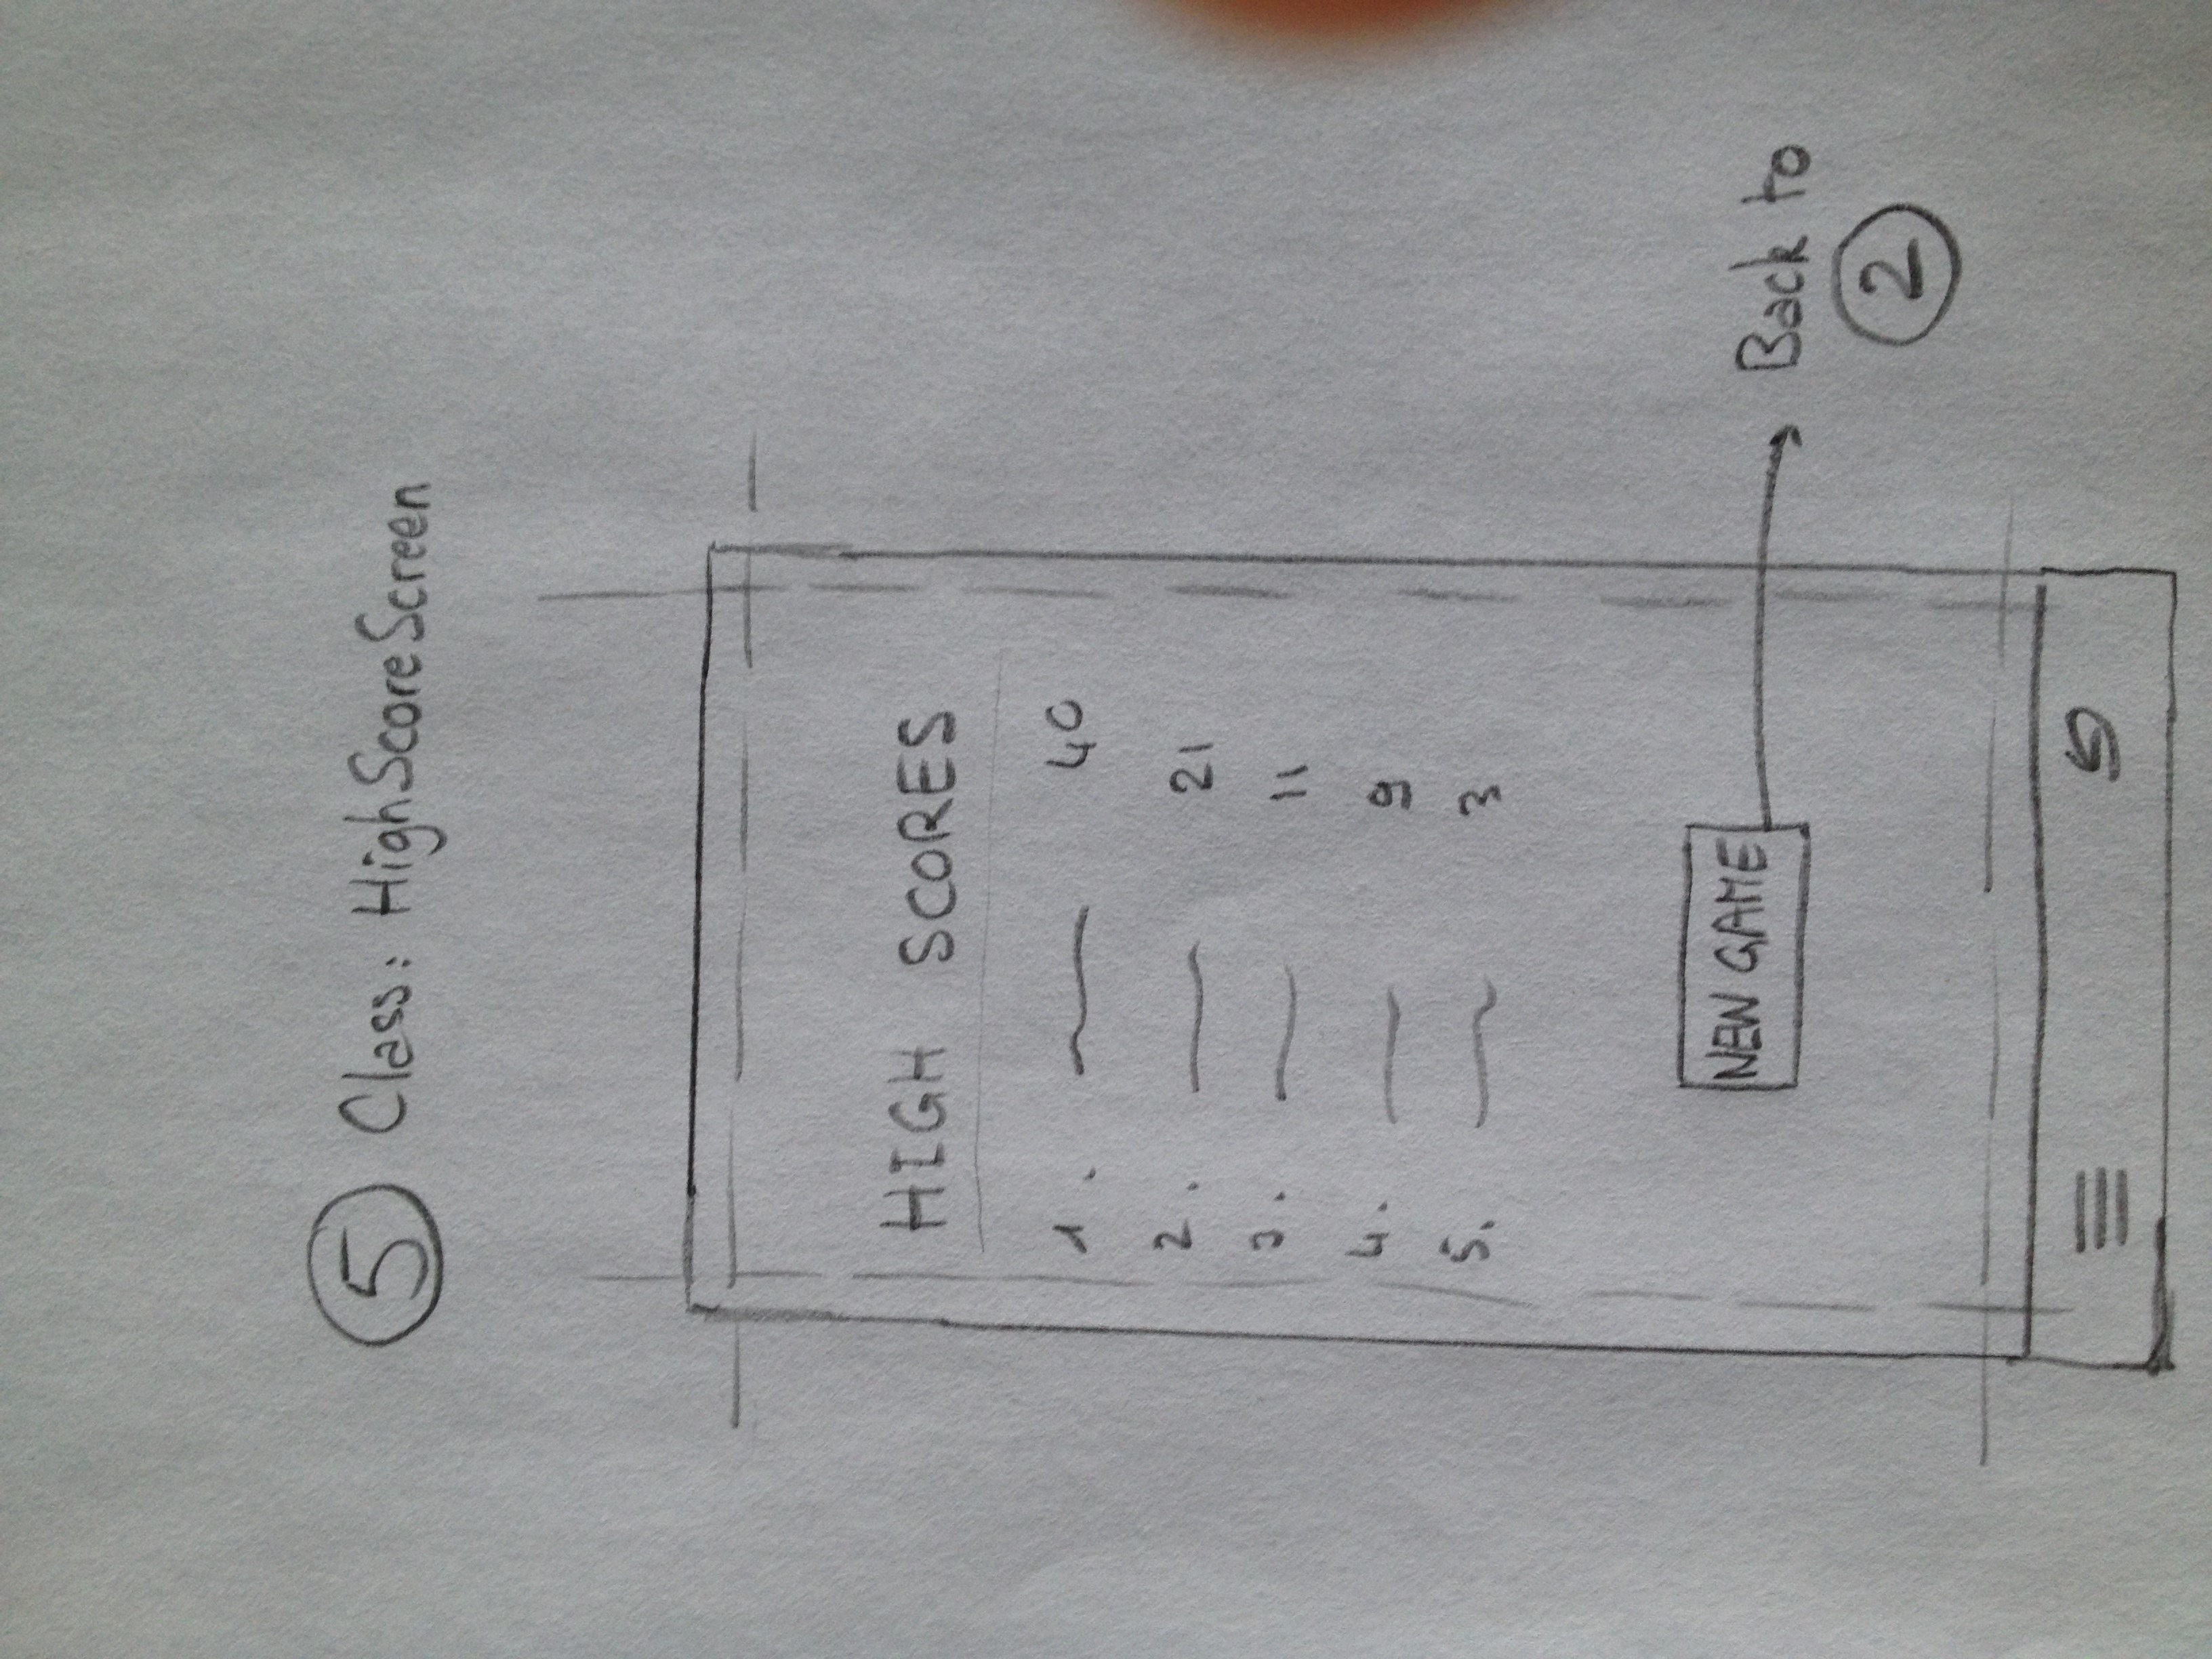 5 Class: HighScoreScreen
HIGH SCORES
1. 40
2. 21
3. 11
4. 9
5. 3
NEW GAME
Back to
2